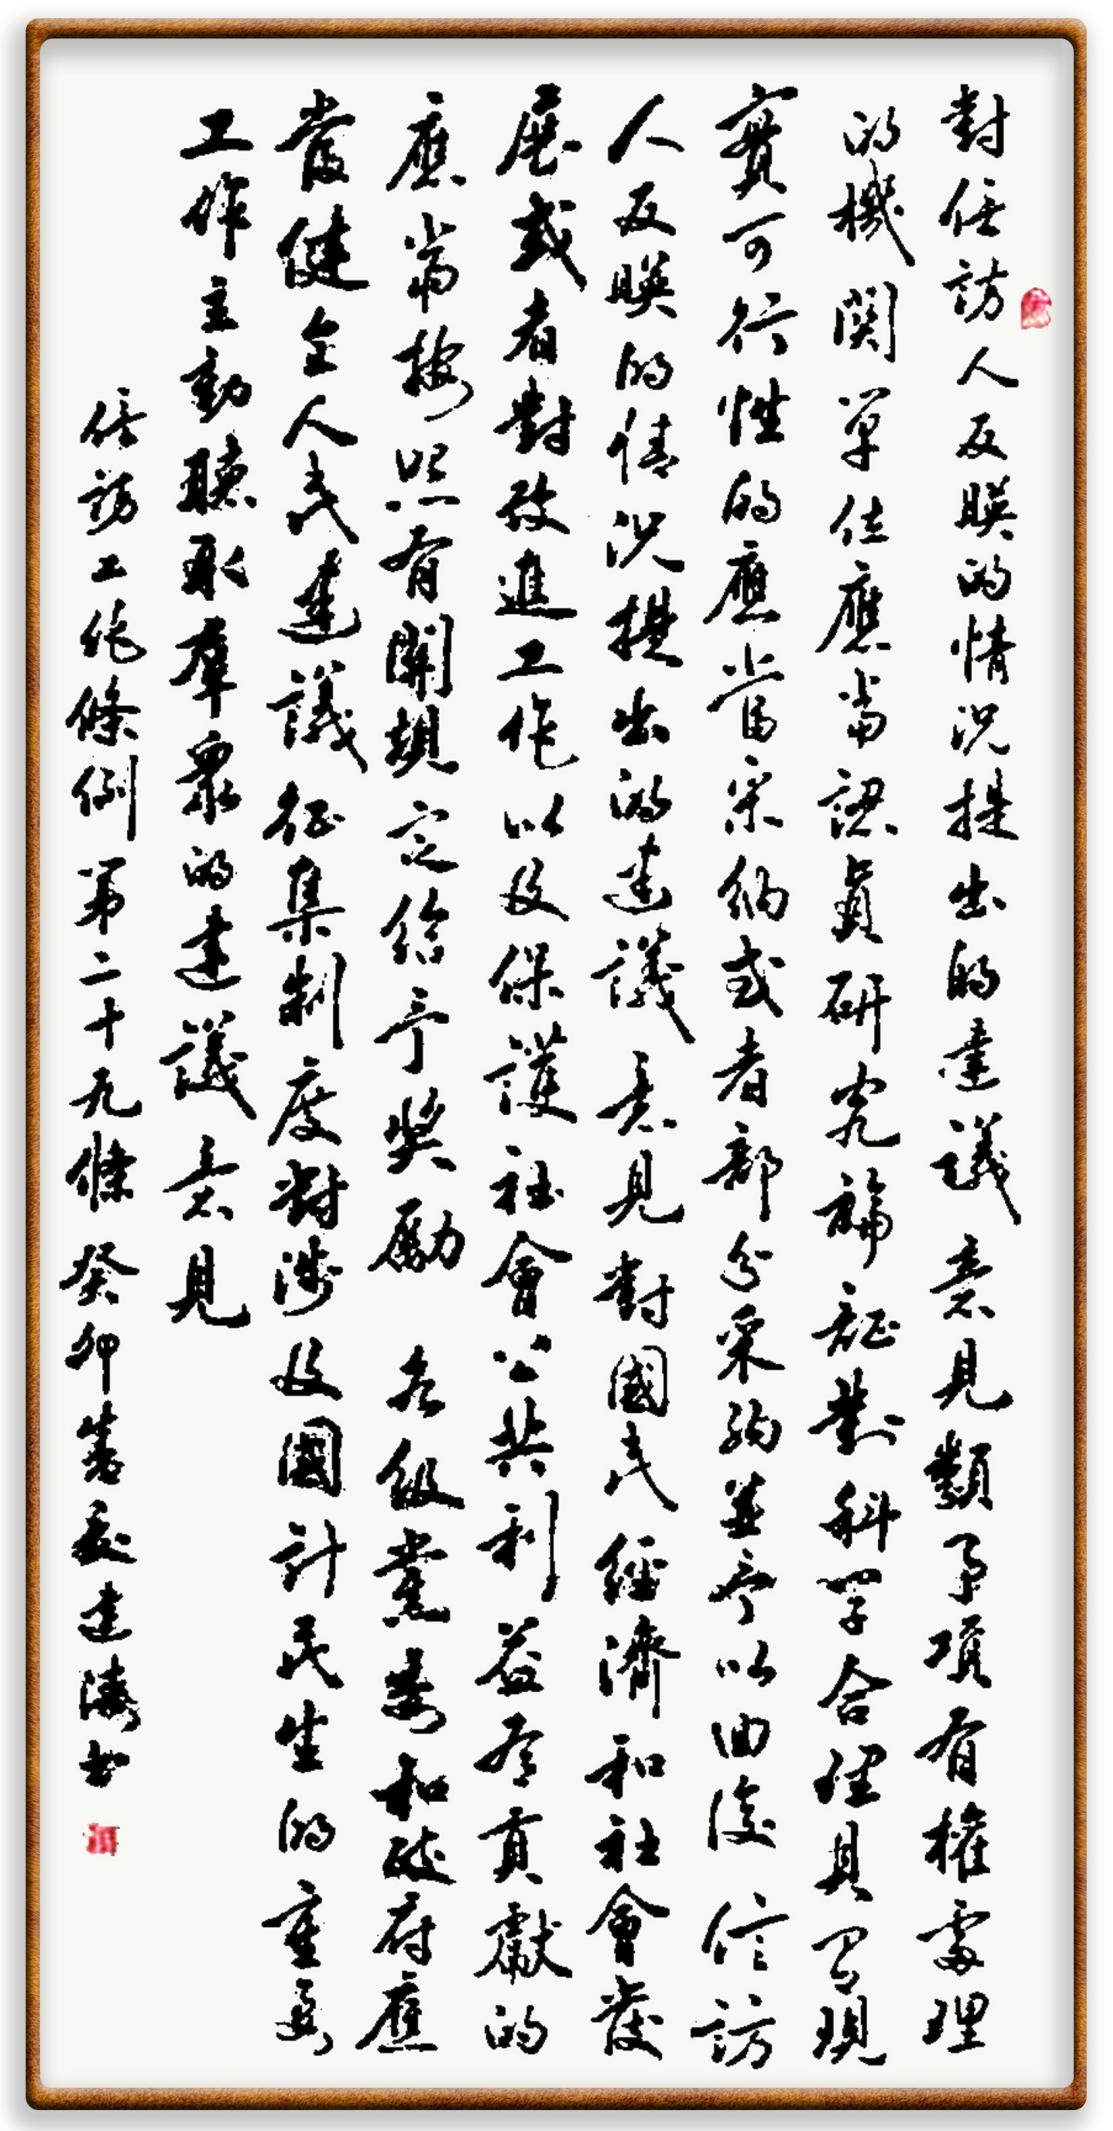 對信訪人反映的情況提出的建議意見類事項有權處理
的機關單位應當認真研究論証對科學合理具有現
實可行性的應當采納或者部分采納並予以回復信訪
人反映的情況提出的建議意見對國民經濟和社會發
展或者對改進工作以及保護社會公共利益有貢獻的
應當按照有關規定給予獎勵各級黨委和政府應
當健全人民建議征集制度對涉及國計民生的重要
工作主動聽取羣衆的建議意見
信訪工作條例第二十九條癸卯書建濤書